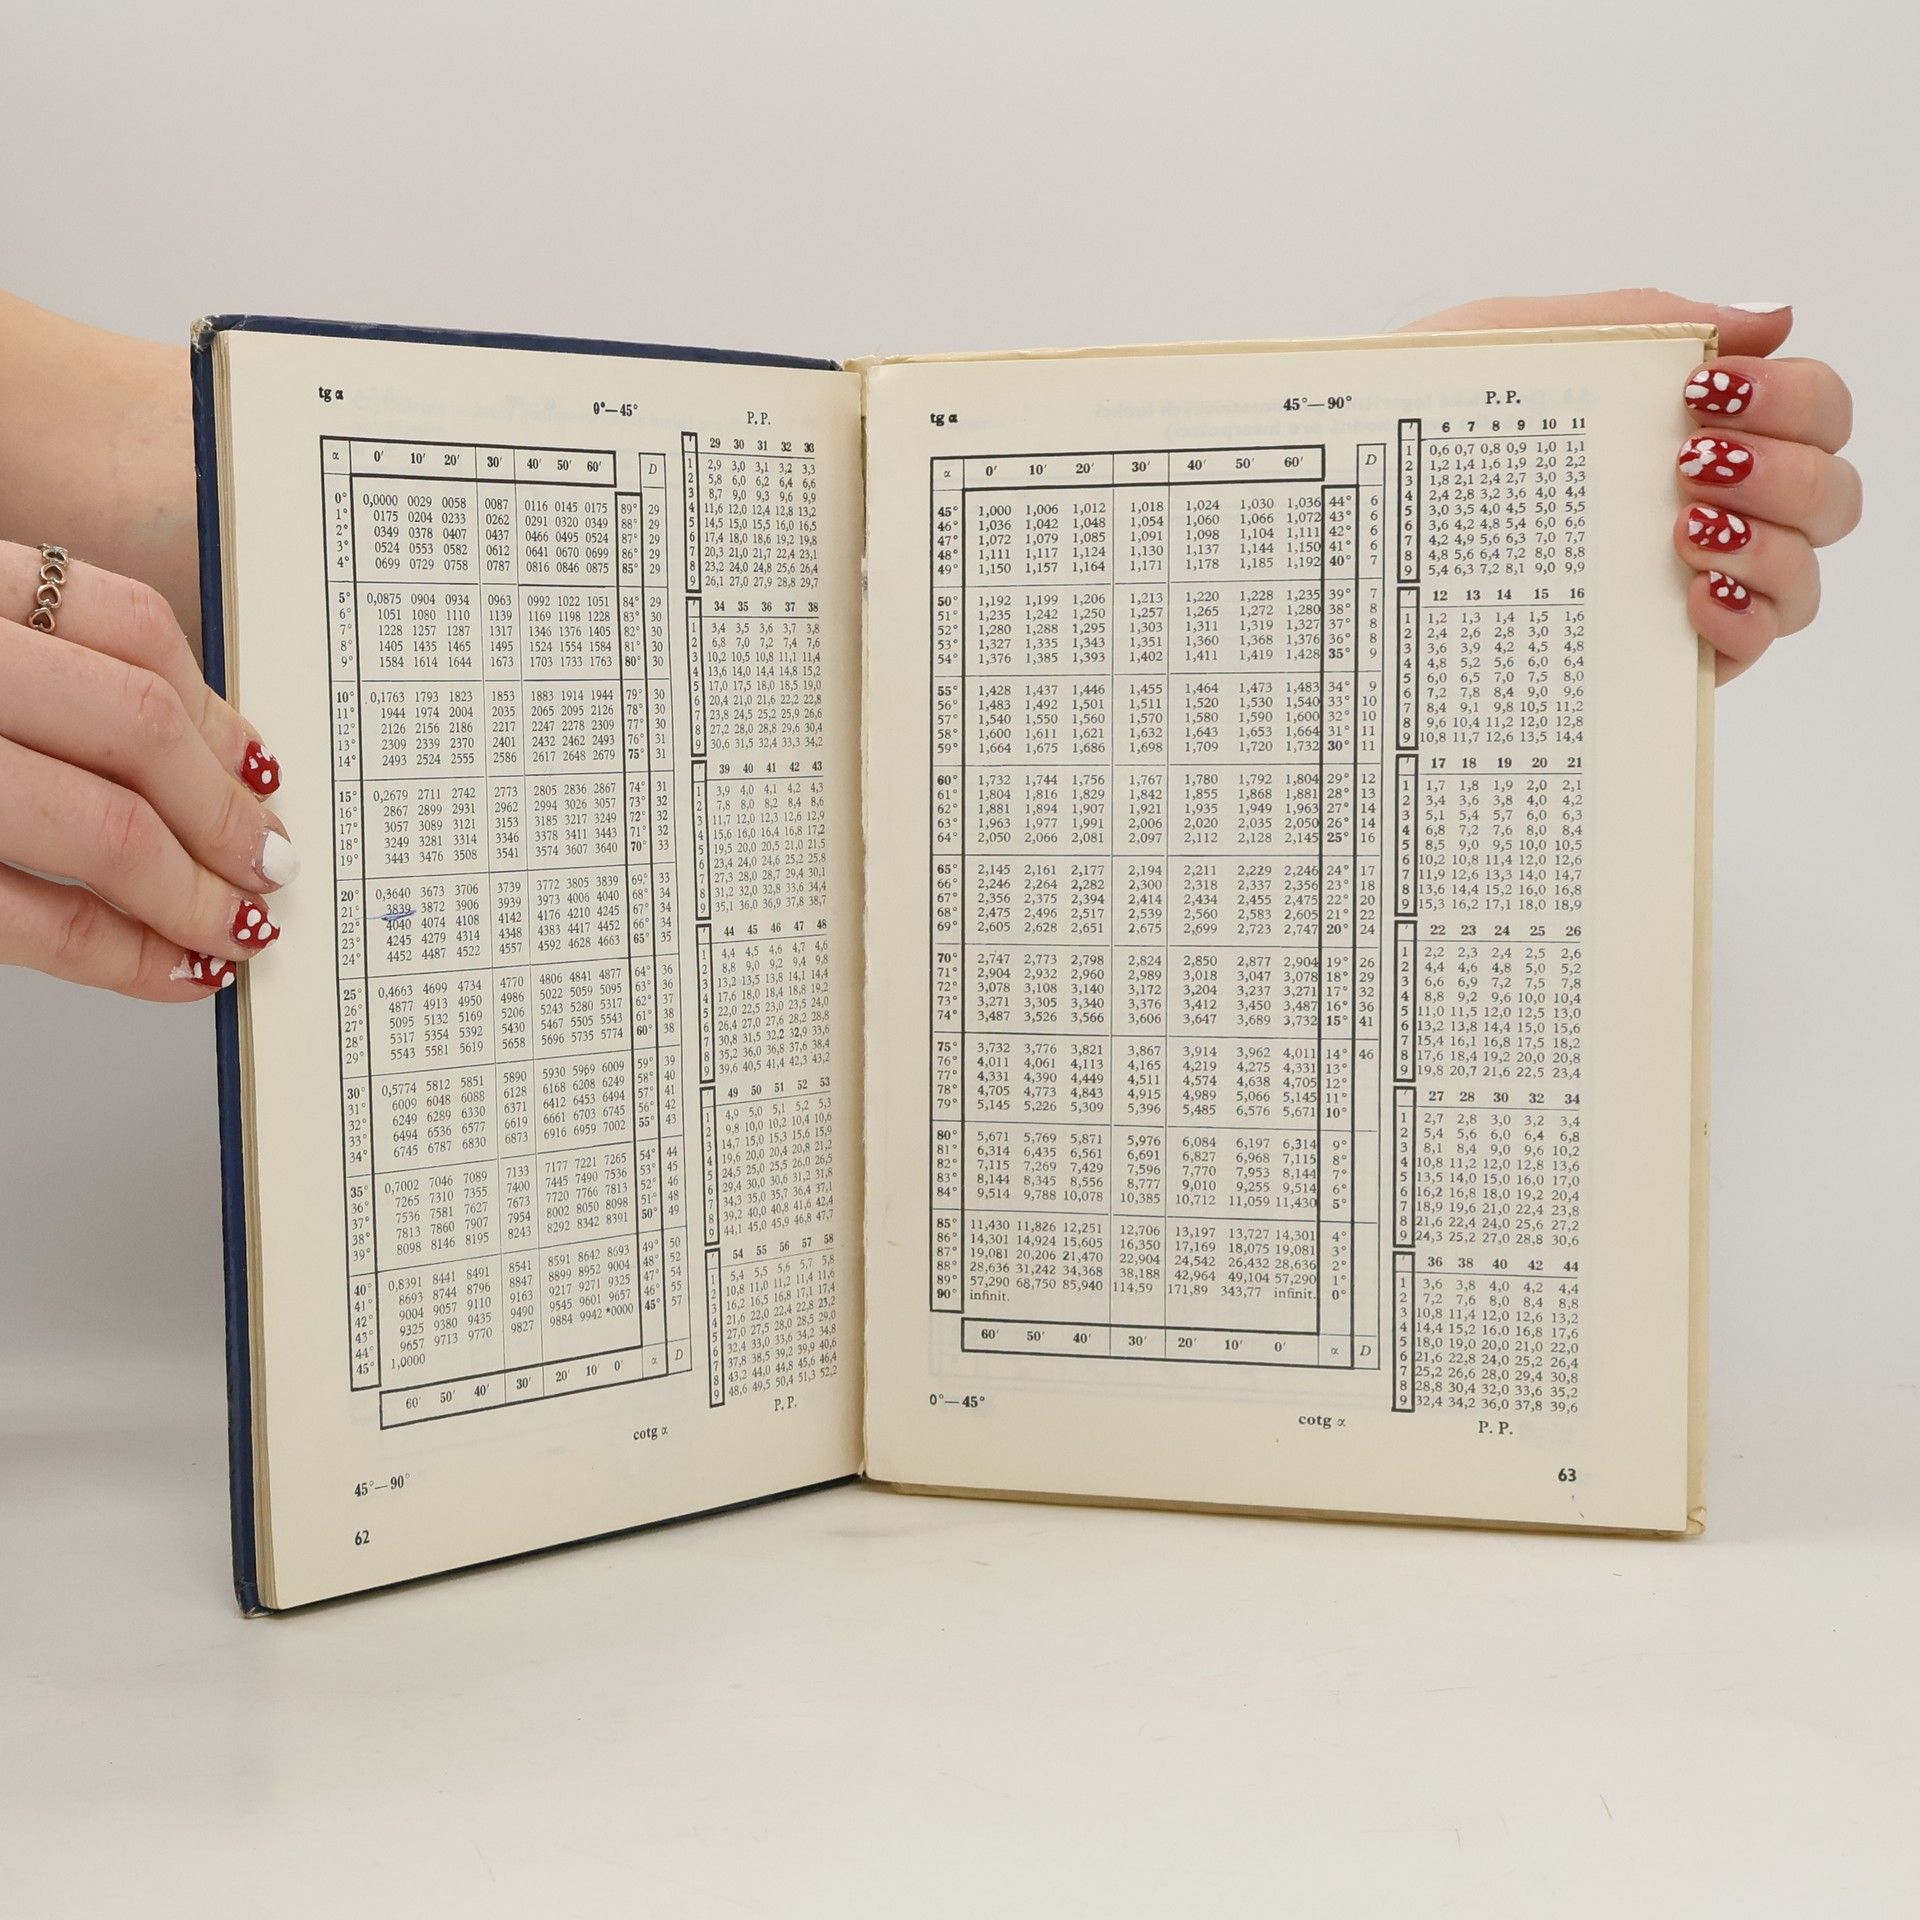 tg α
0°—45°
α 0′ 10′ 20′ 30′ 40′ 50′ 60′ D
0° 0,0000 0029 0058 0087 0116 0145 0175 89° 29
1° 0175 0204 0233 0262 0291 0320 0349 88° 29
2° 0349 0378 0407 0437 0466 0495 0524 87° 29
3° 0524 0553 0582 0612 0641 0670 0699 86° 29
4° 0699 0729 0758 0787 0816 0846 0875 85° 29
5° 0,0875 0904 0934 0963 0992 1022 1051 84° 29
6° 1051 1080 1110 1139 1169 1198 1228 83° 30
7° 1228 1257 1287 1317 1346 1376 1405 82° 30
8° 1405 1435 1465 1495 1524 1554 1584 81° 30
9° 1584 1614 1644 1673 1703 1733 1763 80° 30
10° 0,1763 1793 1823 1853 1883 1914 1944 79° 30
11° 1944 1974 2004 2035 2065 2095 2126 78° 30
12° 2126 2156 2186 2217 2247 2278 2309 77° 30
13° 2309 2339 2370 2401 2432 2462 2493 76° 31
14° 2493 2524 2555 2586 2617 2648 2679 75° 31
15° 0,2679 2711 2742 2773 2805 2836 2867 74° 31
16° 2867 2899 2931 2962 2994 3026 3057 73° 32
17° 3057 3089 3121 3153 3185 3217 3249 72° 32
18° 3249 3281 3314 3346 3378 3411 3443 71° 32
19° 3443 3476 3508 3541 3574 3607 3640 70° 33
20° 0,3640 3673 3706 3739 3772 3805 3839 69° 33
21° 3839 3872 3906 3939 3973 4006 4040 68° 34
22° 4040 4074 4108 4142 4176 4210 4245 67° 34
23° 4245 4279 4314 4348 4383 4417 4452 66° 34
24° 4452 4487 4522 4557 4592 4628 4663 65° 35
25° 0,4663 4699 4734 4770 4806 4841 4877 64° 36
26° 4877 4913 4950 4986 5022 5059 5095 63° 36
27° 5095 5132 5169 5206 5243 5280 5317 62° 37
28° 5317 5354 5392 5430 5467 5505 5543 61° 38
29° 5543 5581 5619 5658 5696 5735 5774 60° 38
30° 0,5774 5812 5851 5890 5930 5969 6009 59° 39
31° 6009 6048 6088 6128 6168 6208 6249 58° 40
32° 6249 6289 6330 6371 6412 6453 6494 57° 41
33° 6494 6536 6577 6619 6661 6703 6745 56° 42
34° 6745 6787 6830 6873 6916 6959 7002 55° 43
35° 0,7002 7046 7089 7133 7177 7221 7265 54° 44
36° 7265 7310 7355 7400 7445 7490 7536 53° 45
37° 7536 7581 7627 7673 7720 7766 7813 52° 46
38° 7813 7860 7907 7954 8002 8050 8098 51° 48
39° 8098 8146 8195 8243 8292 8342 8391 50° 49
40° 0,8391 8441 8491 8541 8591 8642 8693 49° 50
41° 8693 8744 8796 8847 8899 8952 9004 48° 52
42° 9004 9057 9110 9163 9217 9271 9325 47° 54
43° 9325 9380 9435 9490 9545 9601 9657 46° 55
44° 9657 9713 9770 9827 9884 9942 *0000 45° 57
45° 1,0000
60′ 50′ 40′ 30′ 20′ 10′ 0′ α D
cotg α
45°—90°
62
P.P.
′ 29 30 31 32 33
1 2,9 3,0 3,1 3,2 3,3
2 5,8 6,0 6,2 6,4 6,6
3 8,7 9,0 9,3 9,6 9,9
4 11,6 12,0 12,4 12,8 13,2
5 14,5 15,0 15,5 16,0 16,5
6 17,4 18,0 18,6 19,2 19,8
7 20,3 21,0 21,7 22,4 23,1
8 23,2 24,0 24,8 25,6 26,4
9 26,1 27,0 27,9 28,8 29,7
′ 34 35 36 37 38
1 3,4 3,5 3,6 3,7 3,8
2 6,8 7,0 7,2 7,4 7,6
3 10,2 10,5 10,8 11,1 11,4
4 13,6 14,0 14,4 14,8 15,2
5 17,0 17,5 18,0 18,5 19,0
6 20,4 21,0 21,6 22,2 22,8
7 23,8 24,5 25,2 25,9 26,6
8 27,2 28,0 28,8 29,6 30,4
9 30,6 31,5 32,4 33,3 34,2
′ 39 40 41 42 43
1 3,9 4,0 4,1 4,2 4,3
2 7,8 8,0 8,2 8,4 8,6
3 11,7 12,0 12,3 12,6 12,9
4 15,6 16,0 16,4 16,8 17,2
5 19,5 20,0 20,5 21,0 21,5
6 23,4 24,0 24,6 25,2 25,8
7 27,3 28,0 28,7 29,4 30,1
8 31,2 32,0 32,8 33,6 34,4
9 35,1 36,0 36,9 37,8 38,7
′ 44 45 46 47 48
1 4,4 4,5 4,6 4,7 4,6
2 8,8 9,0 9,2 9,4 9,8
3 13,2 13,5 13,8 14,1 14,4
4 17,6 18,0 18,4 18,8 19,2
5 22,0 22,5 23,0 23,5 24,0
6 26,4 27,0 27,6 28,2 28,8
7 30,8 31,5 32,2 32,9 33,6
8 35,2 36,0 36,8 37,6 38,4
9 39,6 40,5 41,4 42,3 43,2
′ 49 50 51 52 53
1 4,9 5,0 5,1 5,2 5,3
2 9,8 10,0 10,2 10,4 10,6
3 14,7 15,0 15,3 15,6 15,9
4 19,6 20,0 20,4 20,8 21,2
5 24,5 25,0 25,5 26,0 26,5
6 29,4 30,0 30,6 31,2 31,8
7 34,3 35,0 35,7 36,4 37,1
8 39,2 40,0 40,8 41,6 42,4
9 44,1 45,0 45,9 46,8 47,7
′ 54 55 56 57 58
1 5,4 5,5 5,6 5,7 5,8
2 10,8 11,0 11,2 11,4 11,6
3 16,2 16,5 16,8 17,1 17,4
4 21,6 22,0 22,4 22,8 23,2
5 27,0 27,5 28,0 28,5 29,0
6 32,4 33,0 33,6 34,2 34,8
7 37,8 38,5 39,2 39,9 40,6
8 43,2 44,0 44,8 45,6 46,4
9 48,6 49,5 50,4 51,3 52,2
P.P.
tg α
45°—90°
α 0′ 10′ 20′ 30′ 40′ 50′ 60′ D
45° 1,000 1,006 1,012 1,018 1,024 1,030 1,036 44° 6
46° 1,036 1,042 1,048 1,054 1,060 1,066 1,072 43° 6
47° 1,072 1,079 1,085 1,091 1,098 1,104 1,111 42° 6
48° 1,111 1,117 1,124 1,130 1,137 1,144 1,150 41° 6
49° 1,150 1,157 1,164 1,171 1,178 1,185 1,192 40° 7
50° 1,192 1,199 1,206 1,213 1,220 1,228 1,235 39° 7
51° 1,235 1,242 1,250 1,257 1,265 1,272 1,280 38° 8
52° 1,280 1,288 1,295 1,303 1,311 1,319 1,327 37° 8
53° 1,327 1,335 1,343 1,351 1,360 1,368 1,376 36° 8
54° 1,376 1,385 1,393 1,402 1,411 1,419 1,428 35° 9
55° 1,428 1,437 1,446 1,455 1,464 1,473 1,483 34° 9
56° 1,483 1,492 1,501 1,511 1,520 1,530 1,540 33° 10
57° 1,540 1,550 1,560 1,570 1,580 1,590 1,600 32° 10
58° 1,600 1,611 1,621 1,632 1,643 1,653 1,664 31° 11
59° 1,664 1,675 1,686 1,698 1,709 1,720 1,732 30° 11
60° 1,732 1,744 1,756 1,767 1,780 1,792 1,804 29° 12
61° 1,804 1,816 1,829 1,842 1,855 1,868 1,881 28° 13
62° 1,881 1,894 1,907 1,921 1,935 1,949 1,963 27° 14
63° 1,963 1,977 1,991 2,006 2,020 2,035 2,050 26° 14
64° 2,050 2,066 2,081 2,097 2,112 2,128 2,145 25° 16
65° 2,145 2,161 2,177 2,194 2,211 2,229 2,246 24° 17
66° 2,246 2,264 2,282 2,300 2,318 2,337 2,356 23° 18
67° 2,356 2,375 2,394 2,414 2,434 2,455 2,475 22° 20
68° 2,475 2,496 2,517 2,539 2,560 2,583 2,605 21° 22
69° 2,605 2,628 2,651 2,675 2,699 2,723 2,747 20° 24
70° 2,747 2,773 2,798 2,824 2,850 2,877 2,904 19° 26
71° 2,904 2,932 2,960 2,989 3,018 3,047 3,078 18° 29
72° 3,078 3,108 3,140 3,172 3,204 3,237 3,271 17° 32
73° 3,271 3,305 3,340 3,376 3,412 3,450 3,487 16° 36
74° 3,487 3,526 3,566 3,606 3,647 3,689 3,732 15° 41
75° 3,732 3,776 3,821 3,867 3,914 3,962 4,011 14° 46
76° 4,011 4,061 4,113 4,165 4,219 4,275 4,331 13°
77° 4,331 4,390 4,449 4,511 4,574 4,638 4,705 12°
78° 4,705 4,773 4,843 4,915 4,989 5,066 5,145 11°
79° 5,145 5,226 5,309 5,396 5,485 6,576 5,671 10°
80° 5,671 5,769 5,871 5,976 6,084 6,197 6,314 9°
81° 6,314 6,435 6,561 6,691 6,827 6,968 7,115 8°
82° 7,115 7,269 7,429 7,596 7,770 7,953 8,144 7°
83° 8,144 8,345 8,556 8,777 9,010 9,255 9,514 6°
84° 9,514 9,788 10,078 10,385 10,712 11,059 11,430 5°
85° 11,430 11,826 12,251 12,706 13,197 13,727 14,301 4°
86° 14,301 14,924 15,605 16,350 17,169 18,075 19,081 3°
87° 19,081 20,206 21,470 22,904 24,542 26,432 28,636 2°
88° 28,636 31,242 34,368 38,188 42,964 49,104 57,290 1°
89° 57,290 68,750 85,940 114,59 171,89 343,77 infinit. 0°
90° infinit.
60′ 50′ 40′ 30′ 20′ 10′ 0′ α D
0°—45°
cotg α
P. P.
′ 6 7 8 9 10 11
1 0,6 0,7 0,8 0,9 1,0 1,1
2 1,2 1,4 1,6 1,9 2,0 2,2
3 1,8 2,1 2,4 2,7 3,0 3,3
4 2,4 2,8 3,2 3,6 4,0 4,4
5 3,0 3,5 4,0 4,5 5,0 5,5
6 3,6 4,2 4,8 5,4 6,0 6,6
7 4,2 4,9 5,6 6,3 7,0 7,7
8 4,8 5,6 6,4 7,2 8,0 8,8
9 5,4 6,3 7,2 8,1 9,0 9,9
′ 12 13 14 15 16
1 1,2 1,3 1,4 1,5 1,6
2 2,4 2,6 2,8 3,0 3,2
3 3,6 3,9 4,2 4,5 4,8
4 4,8 5,2 5,6 6,0 6,4
5 6,0 6,5 7,0 7,5 8,0
6 7,2 7,8 8,4 9,0 9,6
7 8,4 9,1 9,8 10,5 11,2
8 9,6 10,4 11,2 12,0 12,8
9 10,8 11,7 12,6 13,5 14,4
′ 17 18 19 20 21
1 1,7 1,8 1,9 2,0 2,1
2 3,4 3,6 3,8 4,0 4,2
3 5,1 5,4 5,7 6,0 6,3
4 6,8 7,2 7,6 8,0 8,4
5 8,5 9,0 9,5 10,0 10,5
6 10,2 10,8 11,4 12,0 12,6
7 11,9 12,6 13,3 14,0 14,7
8 13,6 14,4 15,2 16,0 16,8
9 15,3 16,2 17,1 18,0 18,9
′ 22 23 24 25 26
1 2,2 2,3 2,4 2,5 2,6
2 4,4 4,6 4,8 5,0 5,2
3 6,6 6,9 7,2 7,5 7,8
4 8,8 9,2 9,6 10,0 10,4
5 11,0 11,5 12,0 12,5 13,0
6 13,2 13,8 14,4 15,0 15,6
7 15,4 16,1 16,8 17,5 18,2
8 17,6 18,4 19,2 20,0 20,8
9 19,8 20,7 21,6 22,5 23,4
′ 27 28 30 32 34
1 2,7 2,8 3,0 3,2 3,4
2 5,4 5,6 6,0 6,4 6,8
3 8,1 8,4 9,0 9,6 10,2
4 10,8 11,2 12,0 12,8 13,6
5 13,5 14,0 15,0 16,0 17,0
6 16,2 16,8 18,0 19,2 20,4
7 18,9 19,6 21,0 22,4 23,8
8 21,6 22,4 24,0 25,6 27,2
9 24,3 25,2 27,0 28,8 30,6
′ 36 38 40 42 44
1 3,6 3,8 4,0 4,2 4,4
2 7,2 7,6 8,0 8,4 8,8
3 10,8 11,4 12,0 12,6 13,2
4 14,4 15,2 16,0 16,8 17,6
5 18,0 19,0 20,0 21,0 22,0
6 21,6 22,8 24,0 25,2 26,4
7 25,2 26,6 28,0 29,4 30,8
8 28,8 30,4 32,0 33,6 35,2
9 32,4 34,2 36,0 37,8 39,6
P. P.
63